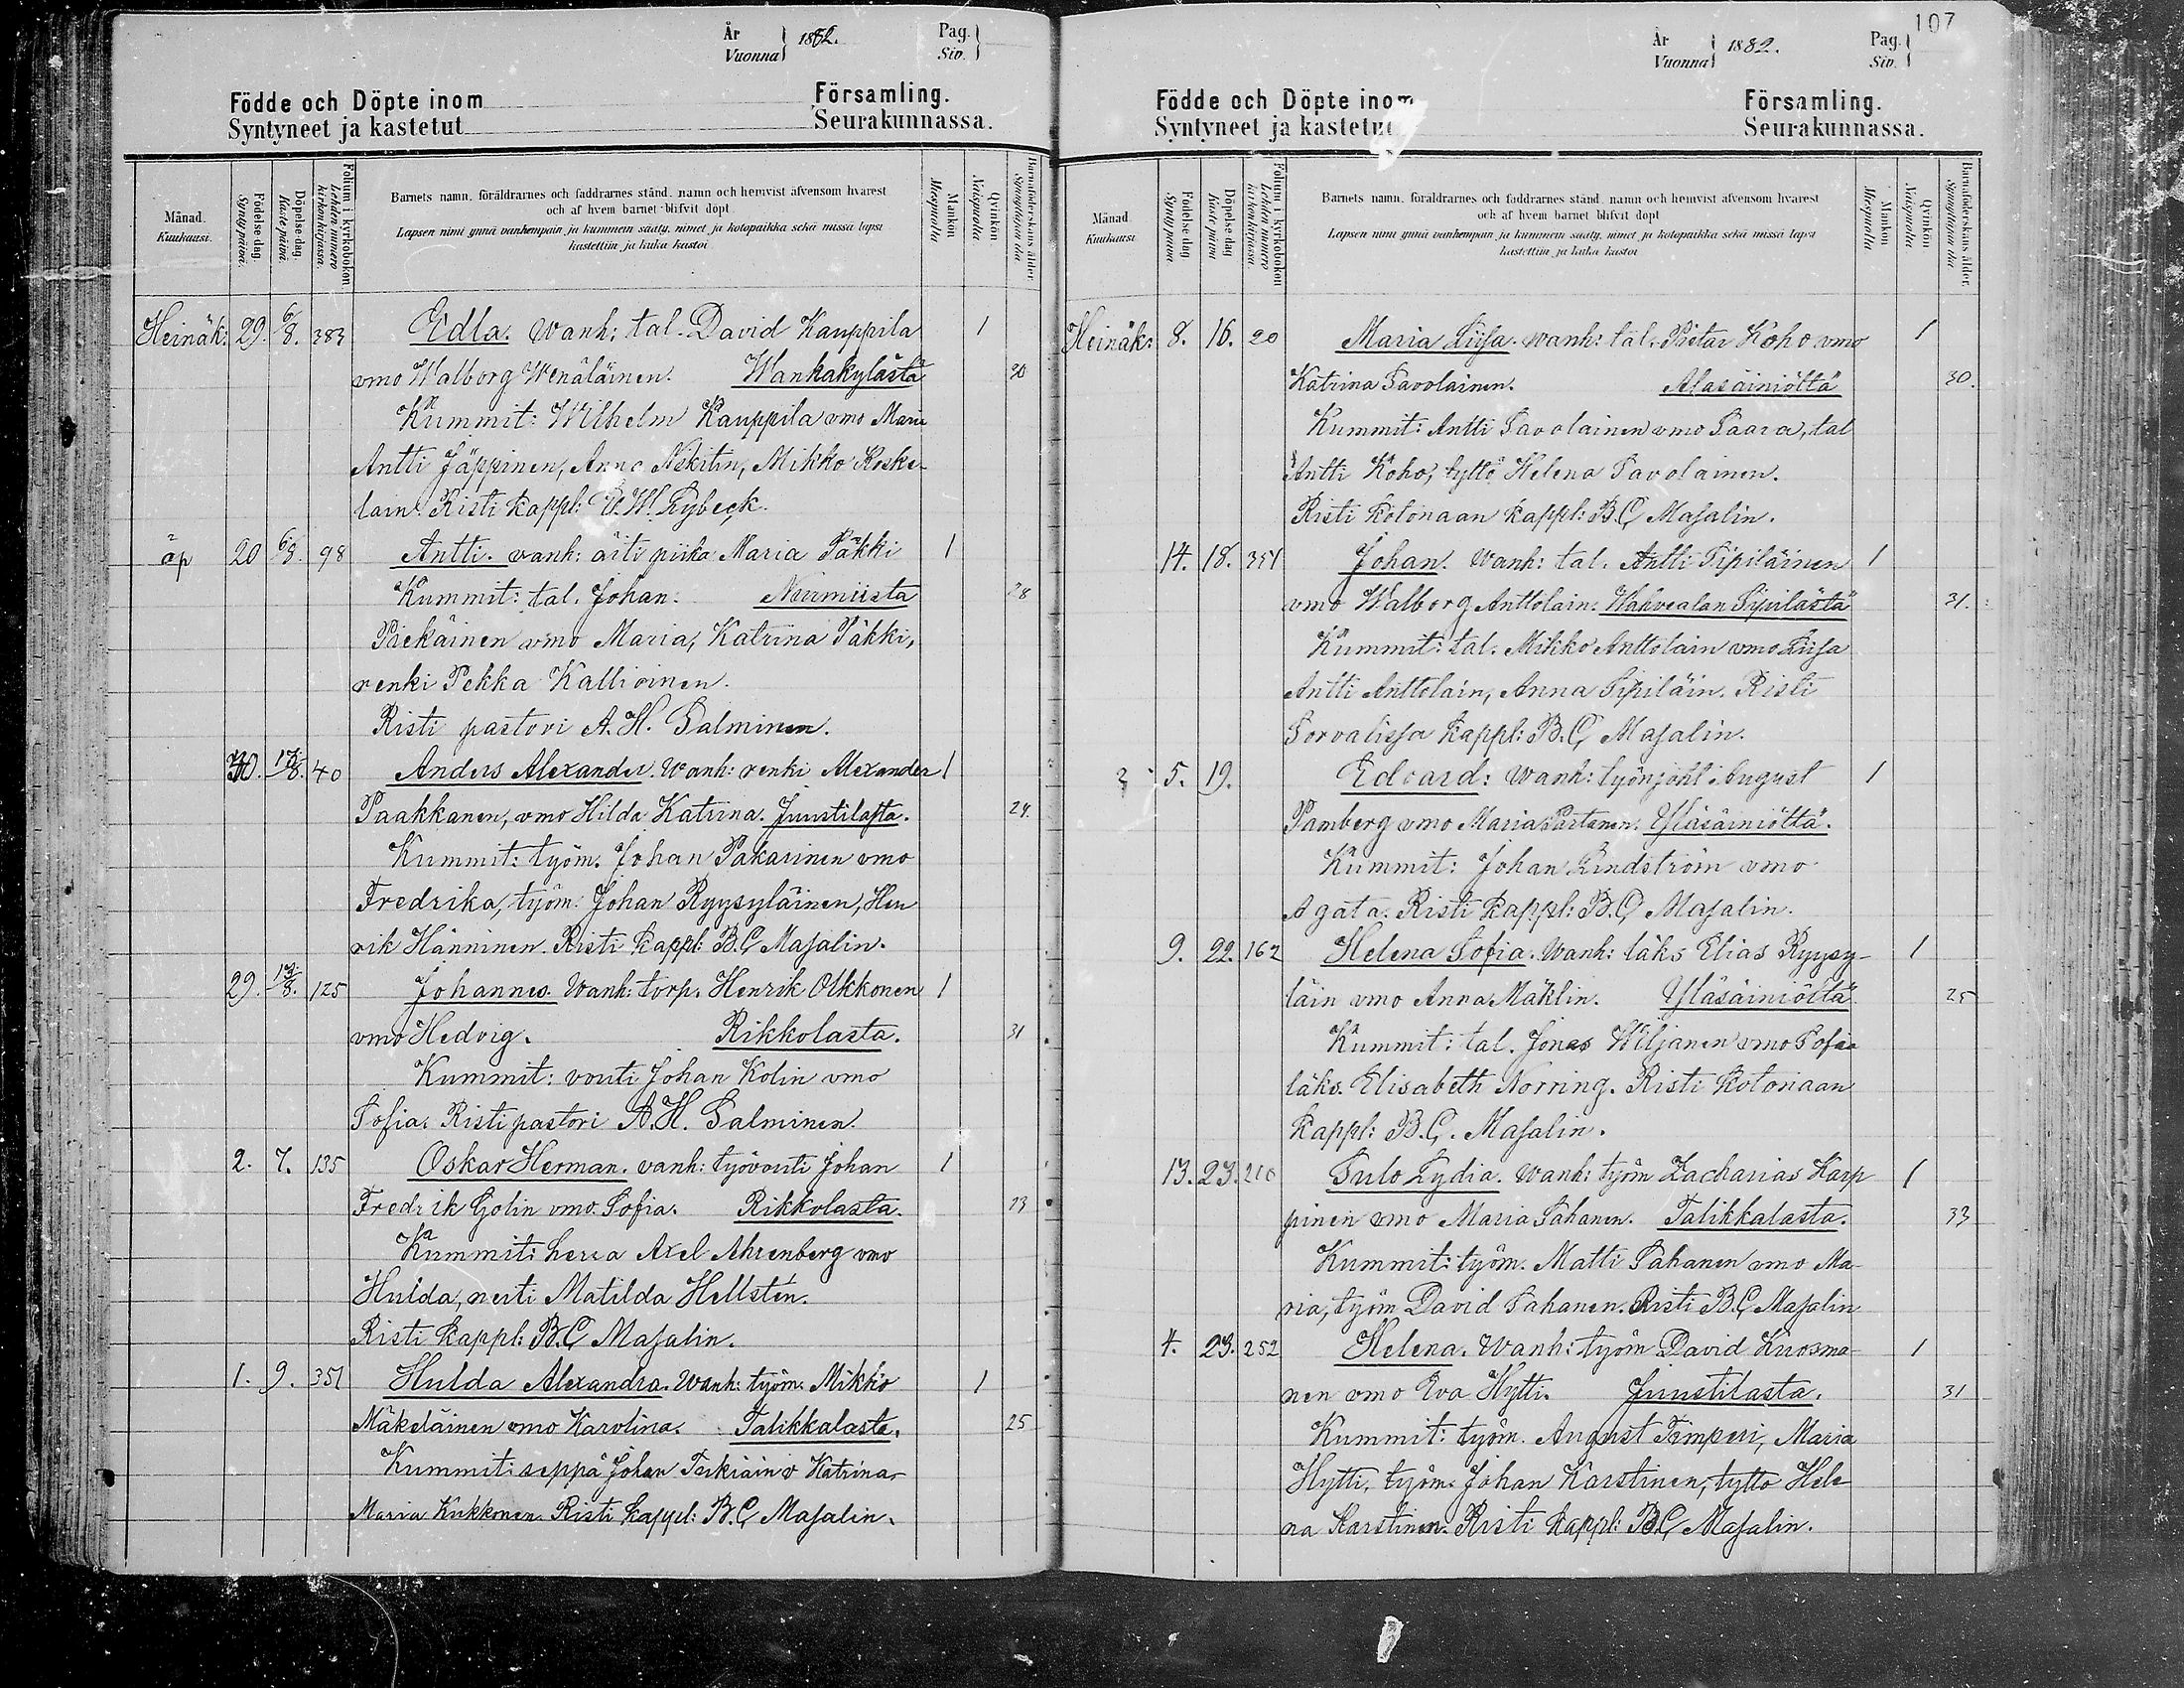 År
Vuonna } 1882.
Pag.
Siv. }
Födde och Döpte inom Församling.
Syntyneet ja kastetut Seurakunnassa.
Månad.
Kuukausi.
Födelse dag.
Synty päivä.
Döpelse dag.
Kaste päivä.
Folium i kyrkoboken
Lehden numero kirkonkirjassa.
Barnets namn, föräldrarnes och faddrarnes stånd, namn och hemvist äfvensom hvarest
och af hvem barnet blifvit döpt
Lapsen nimi ynnä vanhempain ja kummein sääty, nimet ja kotopaikka sekä missä lapsi
kastettiin ja kuka kastoi
Mankön
Miespuolia
Qvinkön
Naispuolia
Barnaföderskans ålder.
Synnyttäjän ikä
Heinäk: 29. 6/8. 383 Edla. wanh: tal. David Kauppila 1
vmo Walborg Wenäläinen. Wanhakylästä 20
Kummit: Wilhelm Kauppila vmo Maria
Antti Jäppinen, Anna Askitin, Mikko Koske-
lain. Risti kappl: U.W. Lybeck.
äp 20 6/8. 98 Antti. wanh: äiti piika Maria Täkki 1
Kummit: tal. Johan. Nurmiista 28
Päekäinen vmo Maria, Katrina Täkki,
renki Pekka Kallioinen.
Risti pastori A. H. Salminen.
30. 13/8. 40 Anders Alexander. Wanh: renki Alexander 1
Paakkanen, vmo Hilda Katrina. Juustilasta. 24.
Kummit: työm. Johan Pakarinen vmo
Fredrika, työm: Johan Ryysyläinen, Hen
rik Hänninen. Risti kappl: B.C. Masalin.
29. 13/8. 125 Johannes. Wanh: torp. Henrik Olkkonen 1
vmo Hedvig. Rikkolasta. 31
Kummit: vouti Johan Kolin vmo
Sofia. Risti pastori A. H. Salminen.
2. 7. 135 Oskar Herman. vanh: työvouti Johan 1
Fredrik Golin vmo. Sofia. Rikkolasta. 23
Kummit: herra Axel Ahrenberg vmo
Hulda, neiti Matilda Hellstén.
Risti kappl: B.C. Masalin.
1. 9. 351 Hulda Alexandra. Wanh: työm. Mikko 1
Mäkeläinen vmo Karolina. Talikkalasta. 25
Kummit: seppä Johan Turkiain v Katrina
Maria Kukkonen. Risti kappl: B.C. Masalin.
107
År
Vuonna } 1882.
Pag.
Siv. }
Födde och Döpte inom Församling.
Syntyneet ja kastetut Seurakunnassa.
Månad
Kuukausi
Födelse dag
Synty päivä
Döpelse dag
Kaste päivä
Folium i kyrkoboken
Lehden numero kirkonkirjassa.
Barnets namn, föräldrarnes och faddrarnes stånd, namn och hemvist äfvensom hvarest
och af hvem barnet blifvit döpt
Lapsen nimi ynnä vanhempain ja kummein sääty, nimet ja kotopaikka sekä missä lapsi
kastettiin ja kuka kastoi
Mankön
Miespuolia
Qvinkön
Naispuolia.
Barnaföderskans ålder.
Synnyttäjän ikä
Heinäk: 8. 16. 20 Maria Liisa. wanh: tal. Pietar Koho vmo 1
Katrina Savolainen. Alasäiniöltä 30.
Kummit: Antti Savolainen vmo Saara, tal
Antti Koho, tyttö Helena Savolainen.
Risti kotonaan kappl: B.C. Masalin.
14. 18. 354 Johan. Wanh: tal. Antti Sipiläinen 1
vmo Walborg Anttolain. Wahvealan Sipilästä 31.
Kummit: tal. Mikko Anttolain vmo Liisa
Antti Anttolain, Anna Sipiläin. Risti
Sorvalissa kappl: B.C. Masalin.
5. 19. Edvard: Wanh: työnjoht: August 1
Pamberg vmo Maria Partanen. Yläsäiniöltä.
Kummit: Johan Lindström vmo
Agata. Risti kappl: B.C. Masalin.
9. 22. 162 Helena Sofia. Wanh: läks Elias Ryysy- 1
läin vmo Anna Mäklin. Yläsäiniöltä 25
Kummit: tal. Jonas Wiljanen vmo Sofia
läks. Elisabeth Norring. Risti kotonaan
kappl: B.C. Masalin.
13. 23. 210 Sulo Lydia. Wanh: työm Zacharias Karp 1
pinen vmo Maria Sahanen. Talikkalasta. 33
Kummit: työm. Matti Sahanen vmo Ma-
ria, työm David Sahanen. Risti B.C. Masalin
4. 23. 252 Helena. Wanh: työm David Kuosma- 1
nen vmo Eva Hytti. Juustilasta. 31
Kummit: työm. August Timperi, Maria
Hytti, työm. Johan Karstinen, tyttö Hele
na Karstinen. Risti kappl: B.C. Masalin.